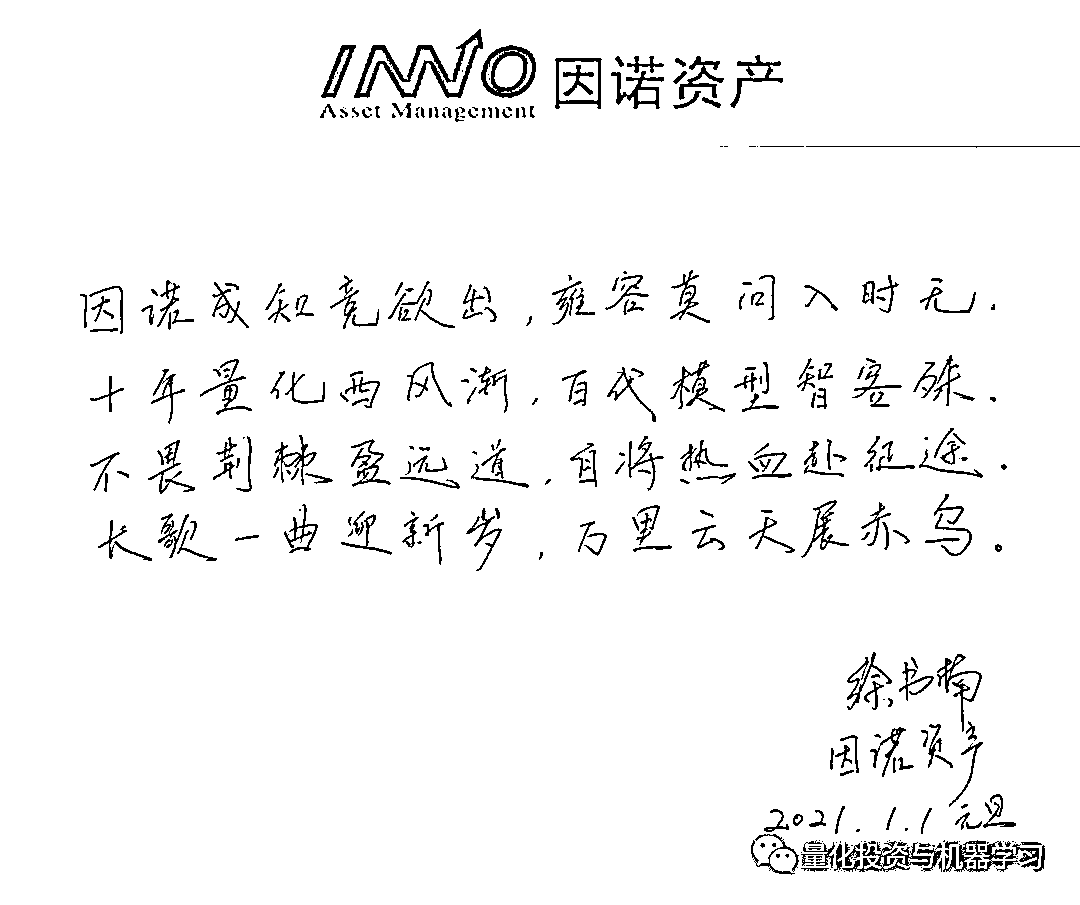 INNO 因诺资产
Asset Management
因诺成知竞欲出，雍容莫问入时无.
十年量化西风渐，百代模型智客殊.
不畏荆棘盈远道，自将热血赴征途.
长歌一曲迎新岁，万里云天展赤乌。
徐书楠
因诺资产
2021.1.1 元旦
量化投资与机器学习